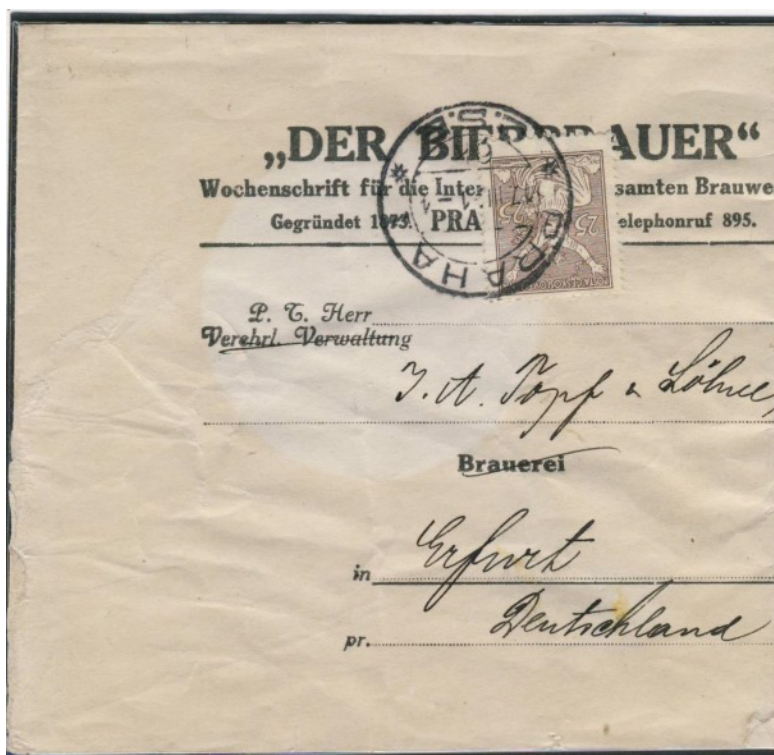 „DER BIERBRAUER“
Wochenschrift für die Inter samten Brauwe
Gegründet 1873. PRA elephonruf 895.
PRAHA
25 25
P. T. Herr
Verehrl. Verwaltung
J. A. Topf & Söhne,
Brauerei
in Erfurt
pr. Deutschland